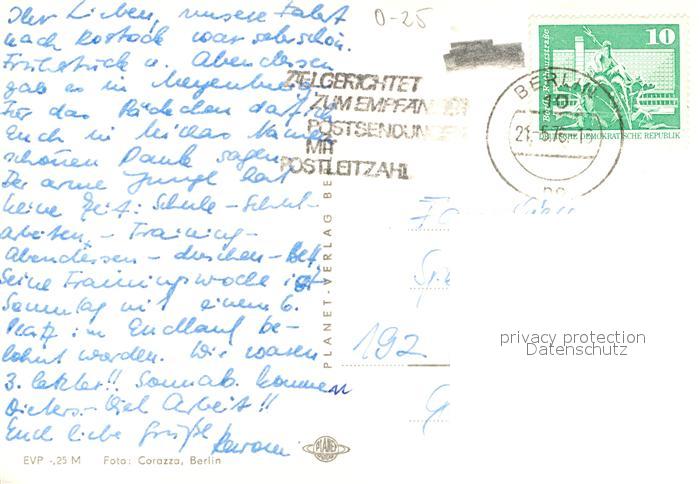 Ihr Lieben, unsere Fahrt
nach Rostock war sehr schön.
Frühstück u. Abendessen
gab es in
Für das Päckchen darf ich
Euch in Mikos Namen
schönen Dank sagen.
Der arme Junge hat
keine Zeit: Schule - Schul-
arbeiten - Training -
Abendessen - duschen - Bett
Seine Trainingswoche ist
Sonntag mit einem 6.
Platz im Endlauf be-
lohnt worden. Wir waren
3. letzter!! Sonnab. kommen
Dieters - Viel Arbeit!!
Euch liebe Grüße
0-25
ZIELGERICHTET
ZUM EMPFÄNGER
POSTSENDUNGEN
MIT
POSTLEITZAHL
BERLIN
21.-5.76
10
DEMOKRATISCHE REPUBLIK
PLANET-VERLAG BE
192
privacy protection
Datenschutz
EVP -,25 M Foto: Corazza, Berlin
PLANET